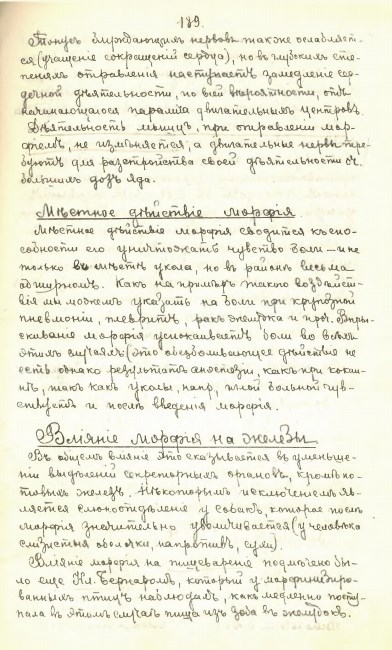 189.
Тонусъ блуждающихъ нервовъ также ослабляет-
ся (учащеніе сокращеній сердца), но въ глубокихъ сте-
пеняхъ отравленія наступаетъ замедленіе сер-
дечной дѣятельности, по всей вѣроятности, отъ
начинающагося паралича двигательныхъ центровъ.
Дѣятельность мышцъ, при отравленіи мор-
фіемъ, не измѣняется, а двигательные нервы тре-
буютъ для разстройства своей дѣятельности
большихъ дозъ яда.
Мѣстное дѣйствіе морфія.
Мѣстное дѣйствіе морфія сводится къ спо-
собности его уничтожать чувство боли — и не
только въ мѣстѣ укола, но въ районѣ весьма
обширномъ. Какъ на примѣръ такого воздѣйст-
вія мы можемъ указать на боли при крупозной
пневмоніи, плевритѣ, ракѣ желудка и проч. Впры-
скиваніе морфія успокаиваетъ боли во всѣхъ
этихъ случаяхъ (это обезболивающее дѣйствіе не
есть однако результатъ анестезіи, какъ при кокаи-
нѣ, такъ какъ уколы, напр, иглой больной чув-
ствуетъ и послѣ введенія морфія.
Вліяніе морфія на железы
Въ общемъ вліяніе это сказывается въ уменьше-
ніи выдѣленій секреторныхъ органовъ, кромѣ по-
товыхъ железъ. Нѣкоторымъ исключеніемъ яв-
ляется слюноотдѣленіе у собакъ, которое послѣ
морфія значительно увеличивается (у человѣка
слизистыя оболочки, напротивъ, сухи).
Вліяніе морфія на пищевареніе подмѣчено бы-
ло еще Кл. Бернаромъ, который у морфинизиро-
ванныхъ птицъ наблюдалъ, какъ медленно посту-
пала въ этомъ случаѣ пища изъ зоба въ желудокъ.